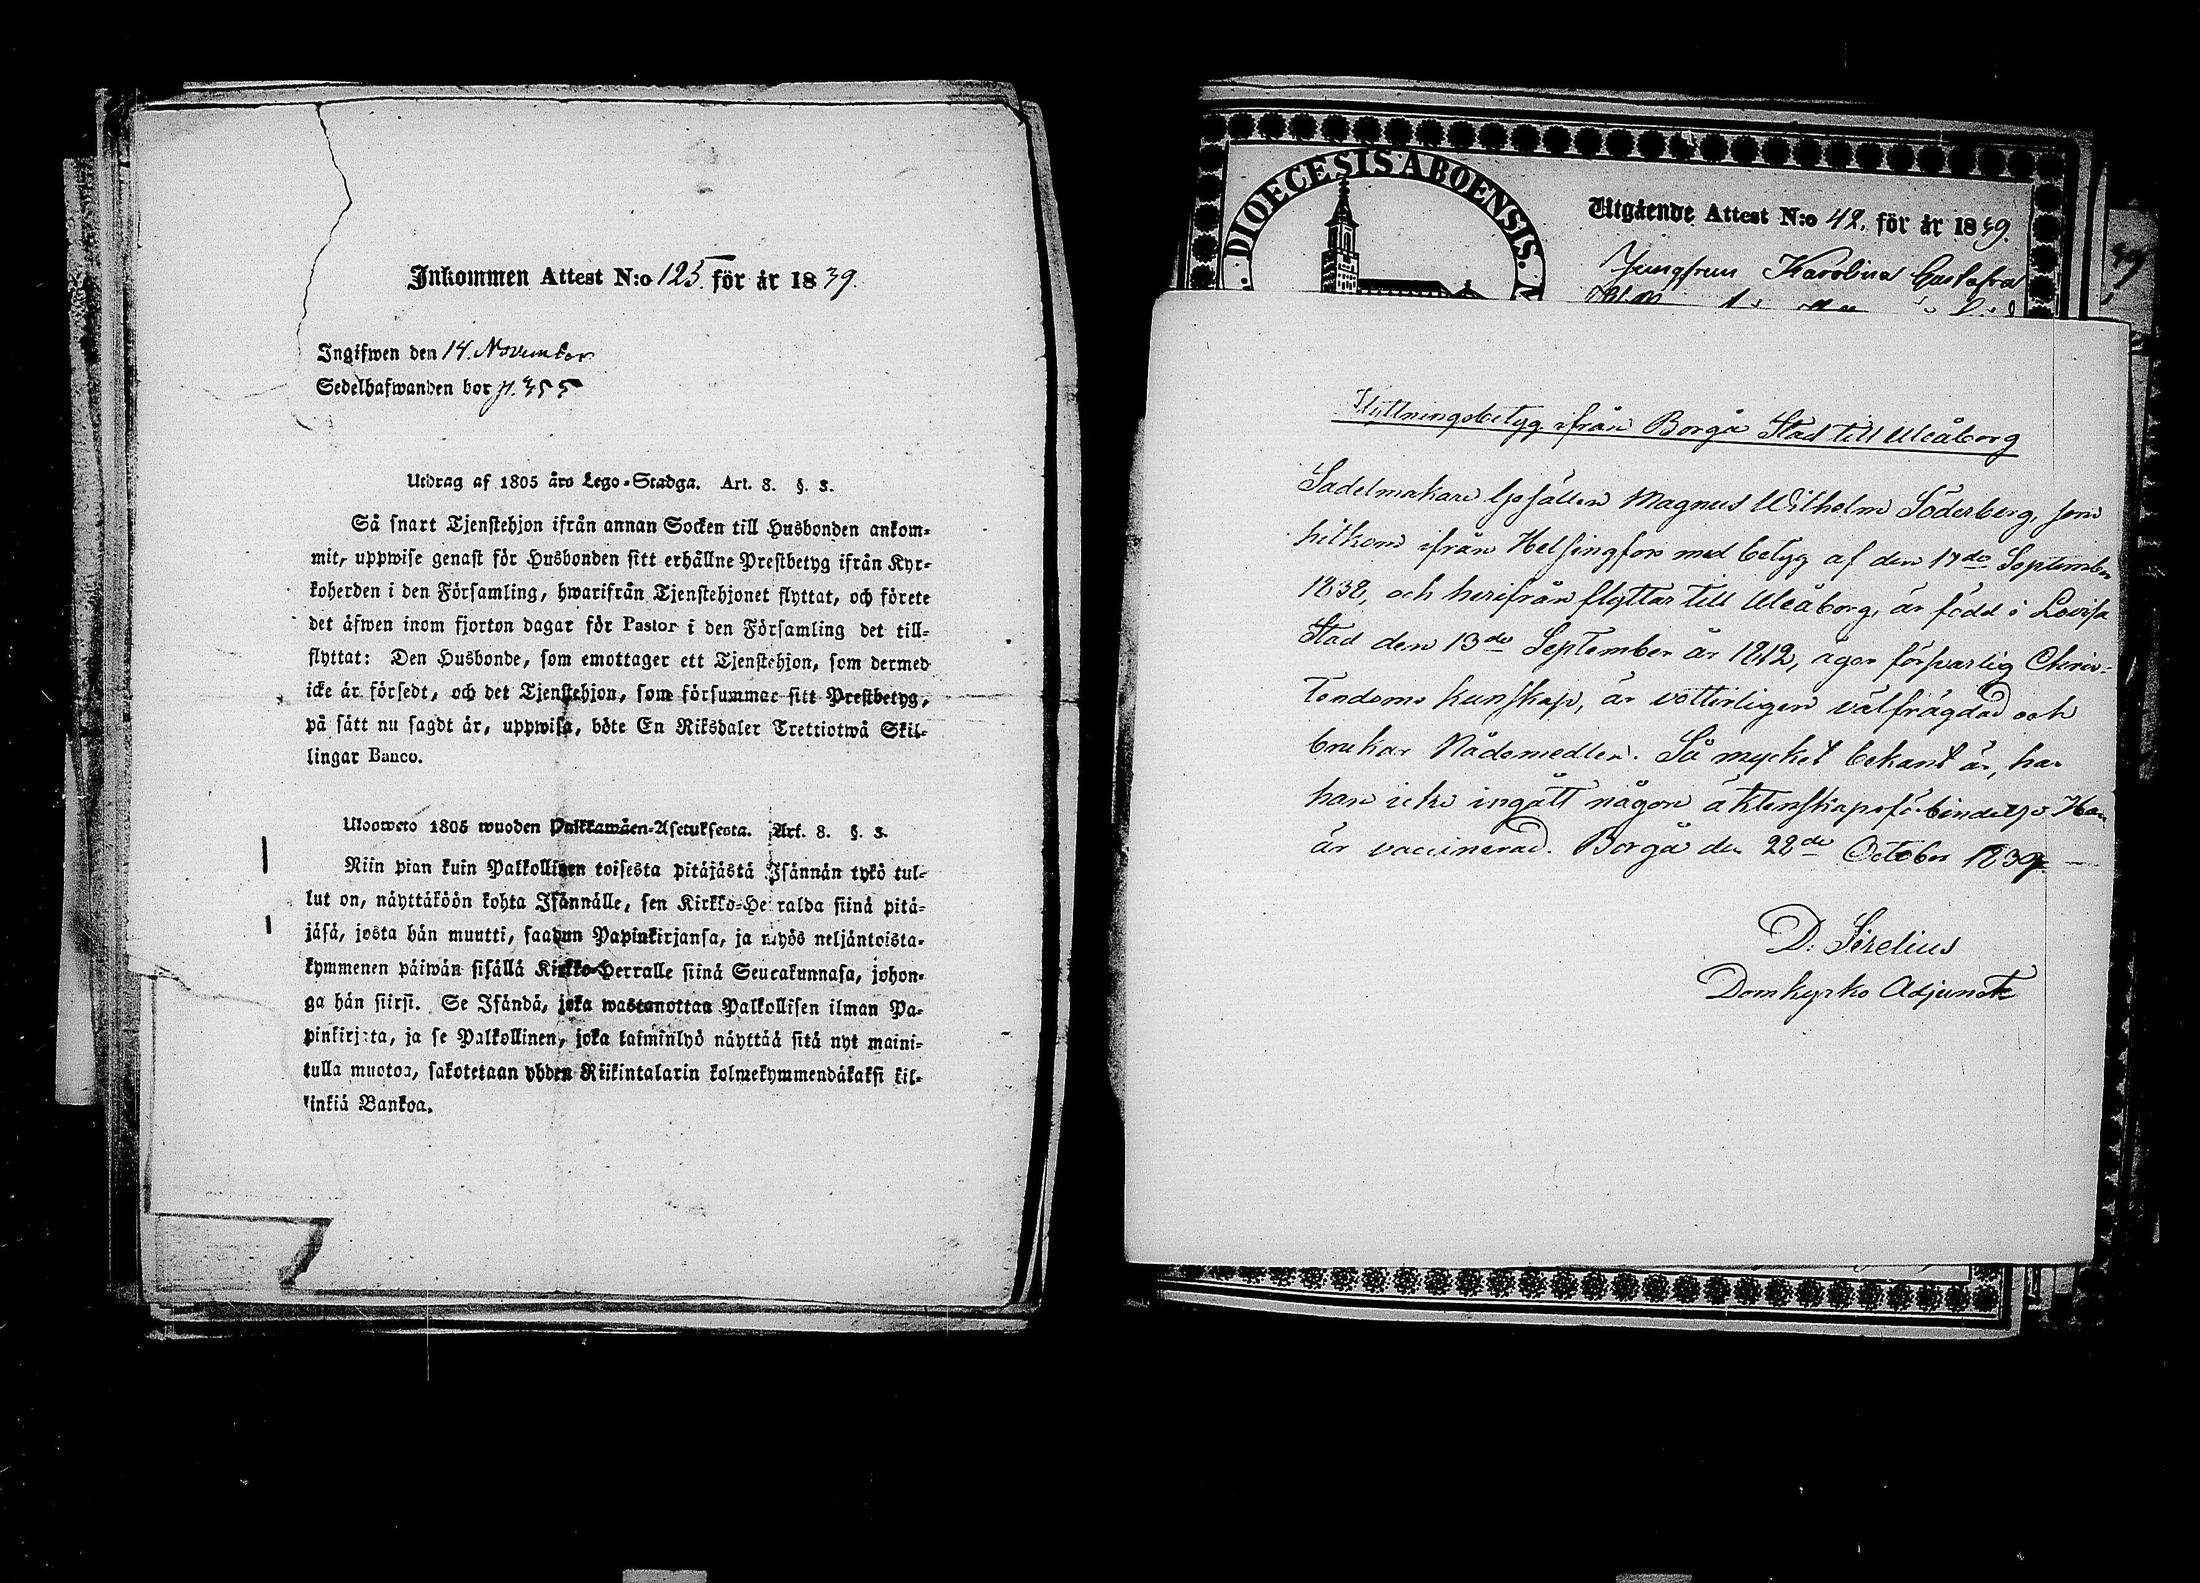 Inkommen Attest N:o 125. för år 1839.
Ingifwen den 14. November
Sedelhafwanden bor p. 355
Utdrag af 1805 års Lego-Stadga. Art. 8. §. 3.
Så snart Tjenstehjon ifrån annan Socken till Husbonden ankom-
mit, uppwise genast för Husbonden sitt erhållne Prestbetyg ifrån Kyr-
koherden i den Församling, hwarifrån Tjenstehjonet flyttat, och förete
det äfwen inom fjorton dagar för Pastor i den Församling det till-
flyttat: Den Husbonde, som emottager ett Tjenstehjon, som dermed
icke är försedt, och det Tjenstehjon, som försummar sitt Prestbetyg,
på sätt nu sagdt är, uppwisa, böte En Riksdaler Trettiotwå Skil-
lingar Banco.
Ulosweto 1805 wuoden Palkkawäen-Asetuksesta. Art. 8. §. 3.
Niin pian kuin Palkollinen toisesta pitäjästä Isännän tykö tul-
lut on, näyttäköön kohta Isännälle, sen Kirkko-Herralda siinä pitä-
jäsä, josta hän muutti, saadun Papinkirjansa, ja myös neljäntoista-
kymmenen päiwän sisällä Kirkko-Herralle siinä Seurakunnasa, johon-
ga hän siirsi. Se Isändä, joka wastanottaa Palkollisen ilman Pa-
pinkirjata, ja se Palkollinen, joka laiminlyö näyttää sitä nyt maini-
tulla muotoa, sakotetaan yhden Riikintalarin kolmekymmendäkaksi kil-
linkiä Bankoa.
DIOECESIS ABOENSIS.
Utgående Attest N:o 42. för år 1839.
Jungfrun Karolina Gustafva
Flyttningsbetyg ifrån Borgå Stad till Uleåborg
Sadelmakare Gesällen Magnus Wilhelm Söderberg, som
hitkom ifrån Helsingfors med betyg af den 17de September
1838, och härifrån flyttar till Uleåborg, är född i Lovisa
Stad den 13de September år 1812, äger försvarlig Chris-
tendoms kunskap, är vitterligen välfrägdad och
brukar Nådemedlen. Så mycket bekant är, har
han icke ingått någon äktenskapsförbindelse. Han
är vaccinerad. Borgå den 28de October 1839.
D. Sirelius
Domkyrko Adjunct